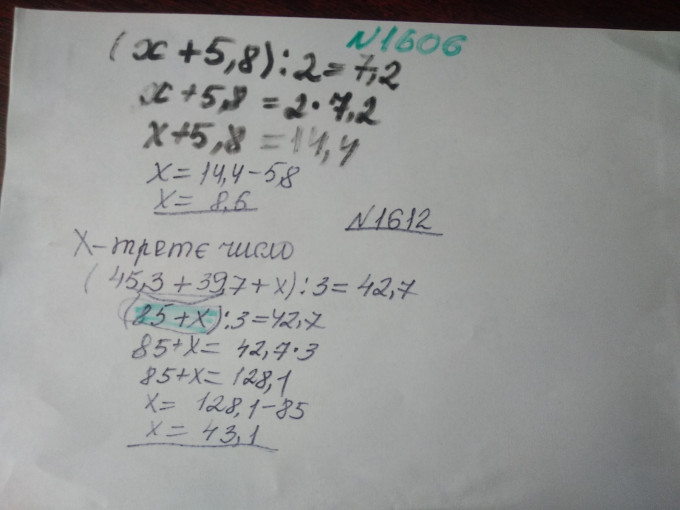 N1606
(x+5,8):2=7,2
x+5,8=2·7,2
x+5,8=14,4
x=14,4-5,8
x=8,6
N1612
X-третє число
(45,3+39,7+x):3=42,7
(85+x):3=42,7
85+x=42,7·3
85+x=128,1
x=128,1-85
x=43,1